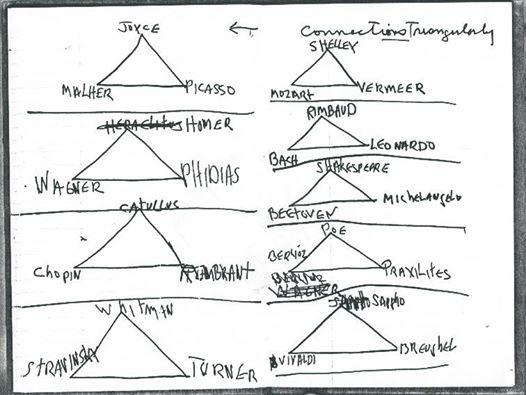 Connections Triangularly
←
JOYCE
MALHER PICASSO
HERACLITUS HOMER
WAGNER PHIDIAS
CATULLUS
Chopin REMBRANT
WHITMAN
STRAVINSKY TURNER
SHELLEY
MOZART VERMEER
RIMBAUD
BACH LEONARDO
SHAKESPEARE
BEETOVEN MichelAngelo
POE
BERLIOZ PRAXILITES
SAPPHO
VIVALDI BREUGHEL